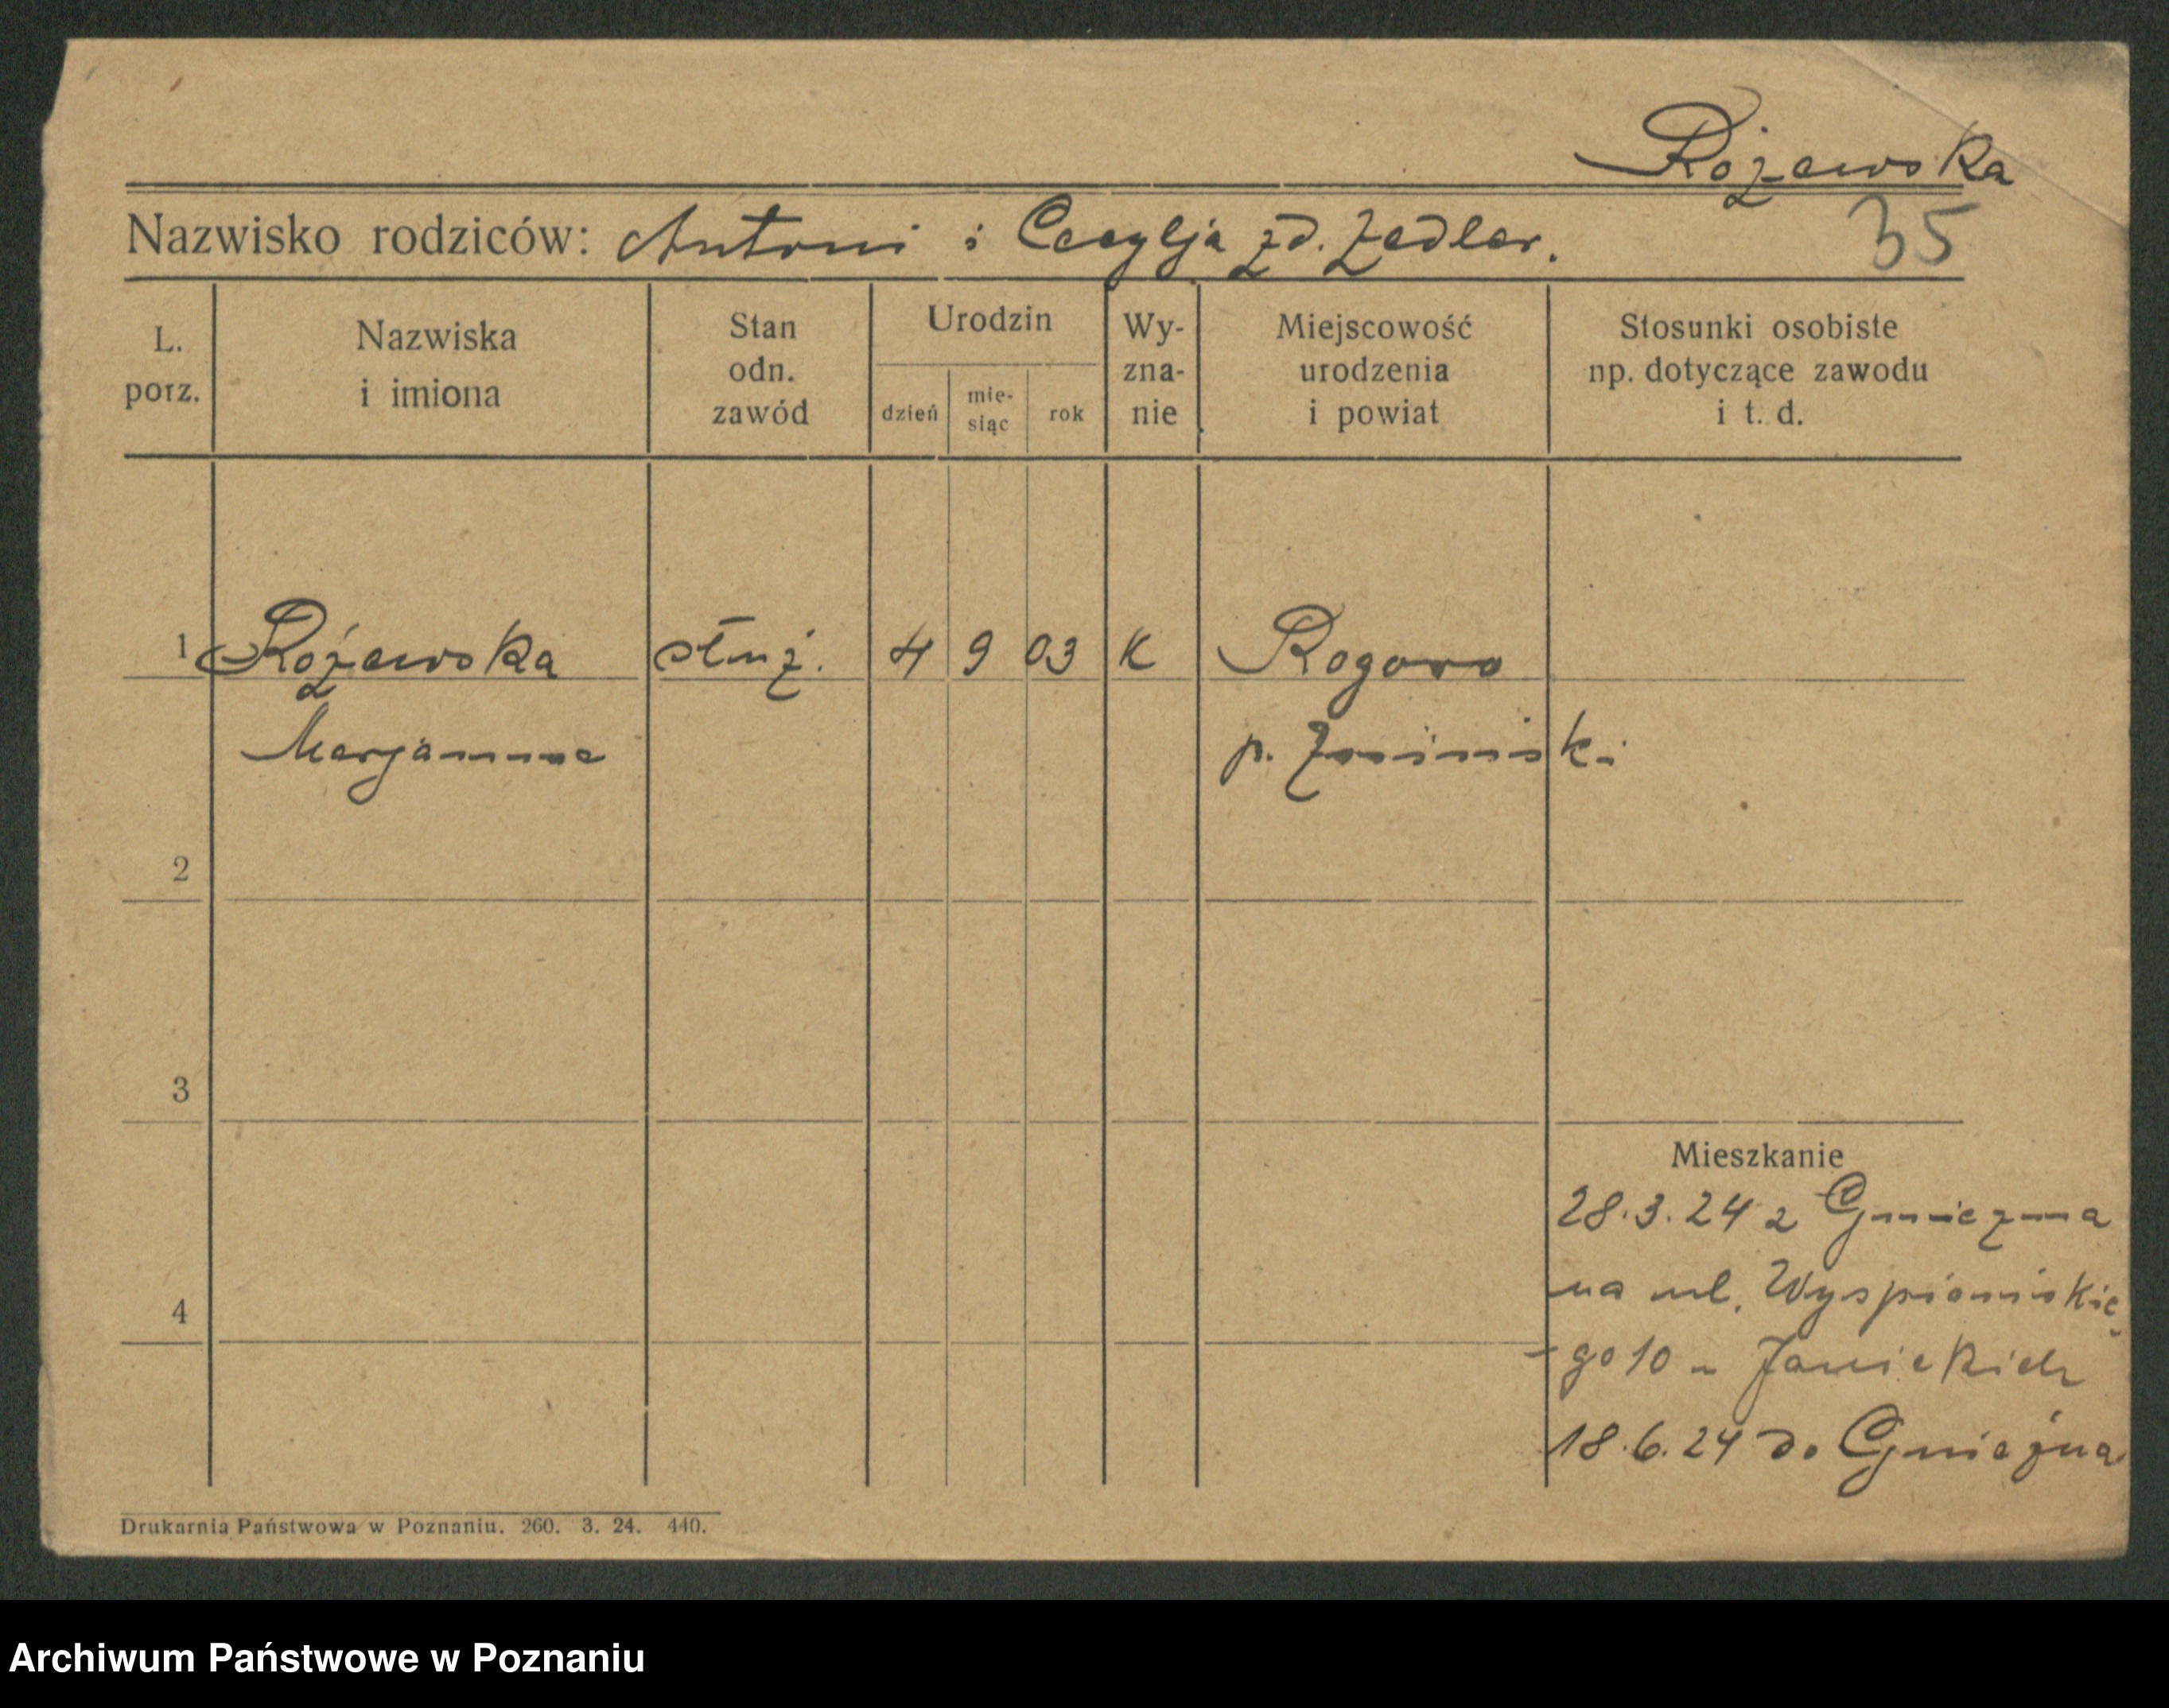 Rożewska
35
Nazwisko rodziców: Antoni i Cecylja zd. Zedler.
L. porz.
Nazwiska i imiona
Stan odn. zawód
Urodzin
dzień
mie- siąc
rok
Wy- zna- nie
Miejscowość urodzenia i powiat
Stosunki osobiste np. dotyczące zawodu i t. d.
1 Rożewska służ. 4 9 03 K Rogowo
Marjanna p. Żniński
2
3
Mieszkanie
28.3.24 z Gniezna
na ul. Wyspiańskie
4
-go 10 u Janickich
18.6.24 do Gniezna
Drukarnia Państwowa w Poznaniu. 260. 3. 24. 440.
Archiwum Państwowe w Poznaniu